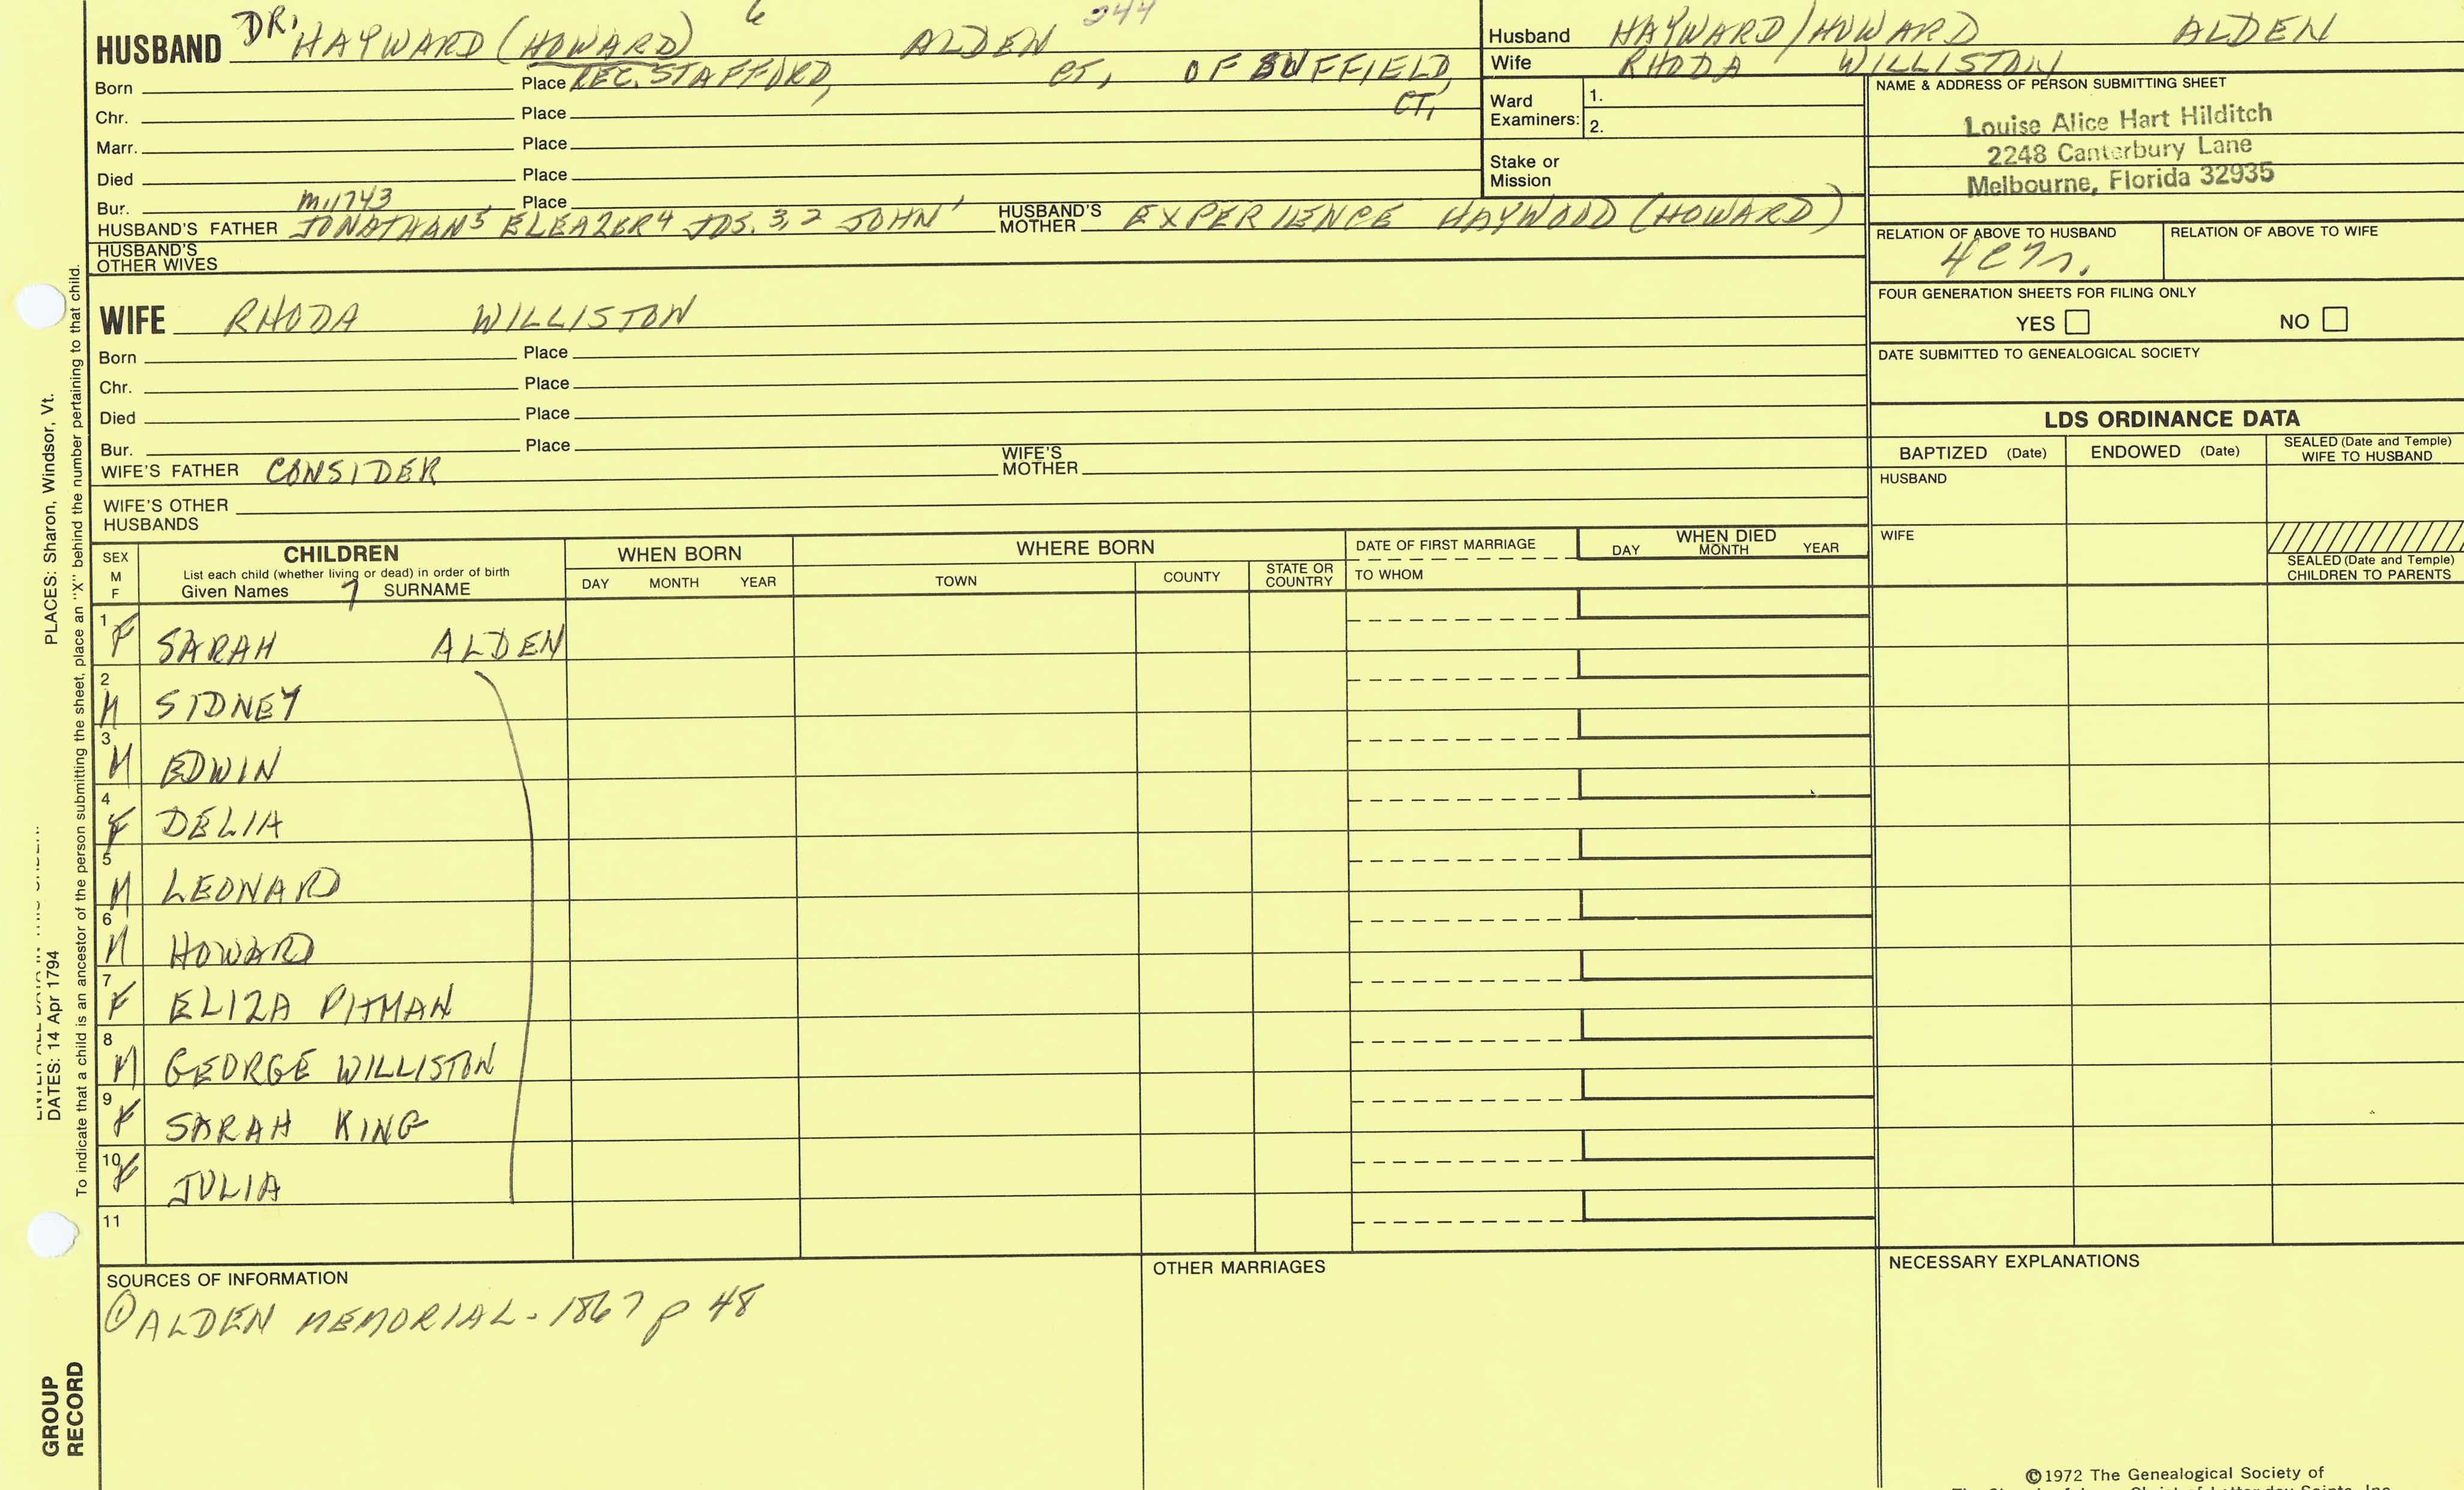 HUSBAND DR. HAYWARD (HOWARD) 6 ALDEN 244
Born Place REC. STAFFORD, CT, OF SUFFIELD, CT,
Chr. Place
Marr. Place
Died Place
Bur. m. 1743 Place
HUSBAND'S FATHER JONATHAN5 ELEAZER4 JOS. 3,2 JOHN1 HUSBAND'S MOTHER EXPERIENCE HAYWOOD (HOWARD)
HUSBAND'S OTHER WIVES
WIFE RHODA WILLISTON
Born Place
Chr. Place
Died Place
Bur. Place
WIFE'S FATHER CONSIDER WIFE'S MOTHER
WIFE'S OTHER HUSBANDS
Husband HAYWARD/HOWARD ALDEN
Wife RHODA WILLISTON
Ward Examiners: 1.
2.
Stake or Mission
NAME & ADDRESS OF PERSON SUBMITTING SHEET
Louise Alice Hart Hilditch
2248 Canterbury Lane
Melbourne, Florida 32935
RELATION OF ABOVE TO HUSBAND RELATION OF ABOVE TO WIFE
FOUR GENERATION SHEETS FOR FILING ONLY
YES NO
DATE SUBMITTED TO GENEALOGICAL SOCIETY
LDS ORDINANCE DATA
BAPTIZED (Date) ENDOWED (Date) SEALED (Date and Temple) WIFE TO HUSBAND
HUSBAND
WIFE
SEALED (Date and Temple) CHILDREN TO PARENTS
SEX M F
CHILDREN
List each child (whether living or dead) in order of birth
Given Names 7 SURNAME
WHEN BORN
DAY MONTH YEAR
WHERE BORN
TOWN COUNTY STATE OR COUNTRY
DATE OF FIRST MARRIAGE
TO WHOM
WHEN DIED
DAY MONTH YEAR
1 F SARAH ALDEN
2 M SIDNEY
3 M EDWIN
4 F DELIA
5 M LEONARD
6 M HOWARD
7 F ELIZA PITMAN
8 M GEORGE WILLISTON
9 F SARAH KING
10 F JULIA
11
SOURCES OF INFORMATION
① ALDEN MEMORIAL - 1867 p 48
OTHER MARRIAGES
NECESSARY EXPLANATIONS
©1972 The Genealogical Society of
PLACES: Sharon, Windsor, Vt.
DATES: 14 Apr 1794
To indicate that a child is an ancestor of the person submitting the sheet, place an "X" behind the number pertaining to that child.
GROUP
RECORD